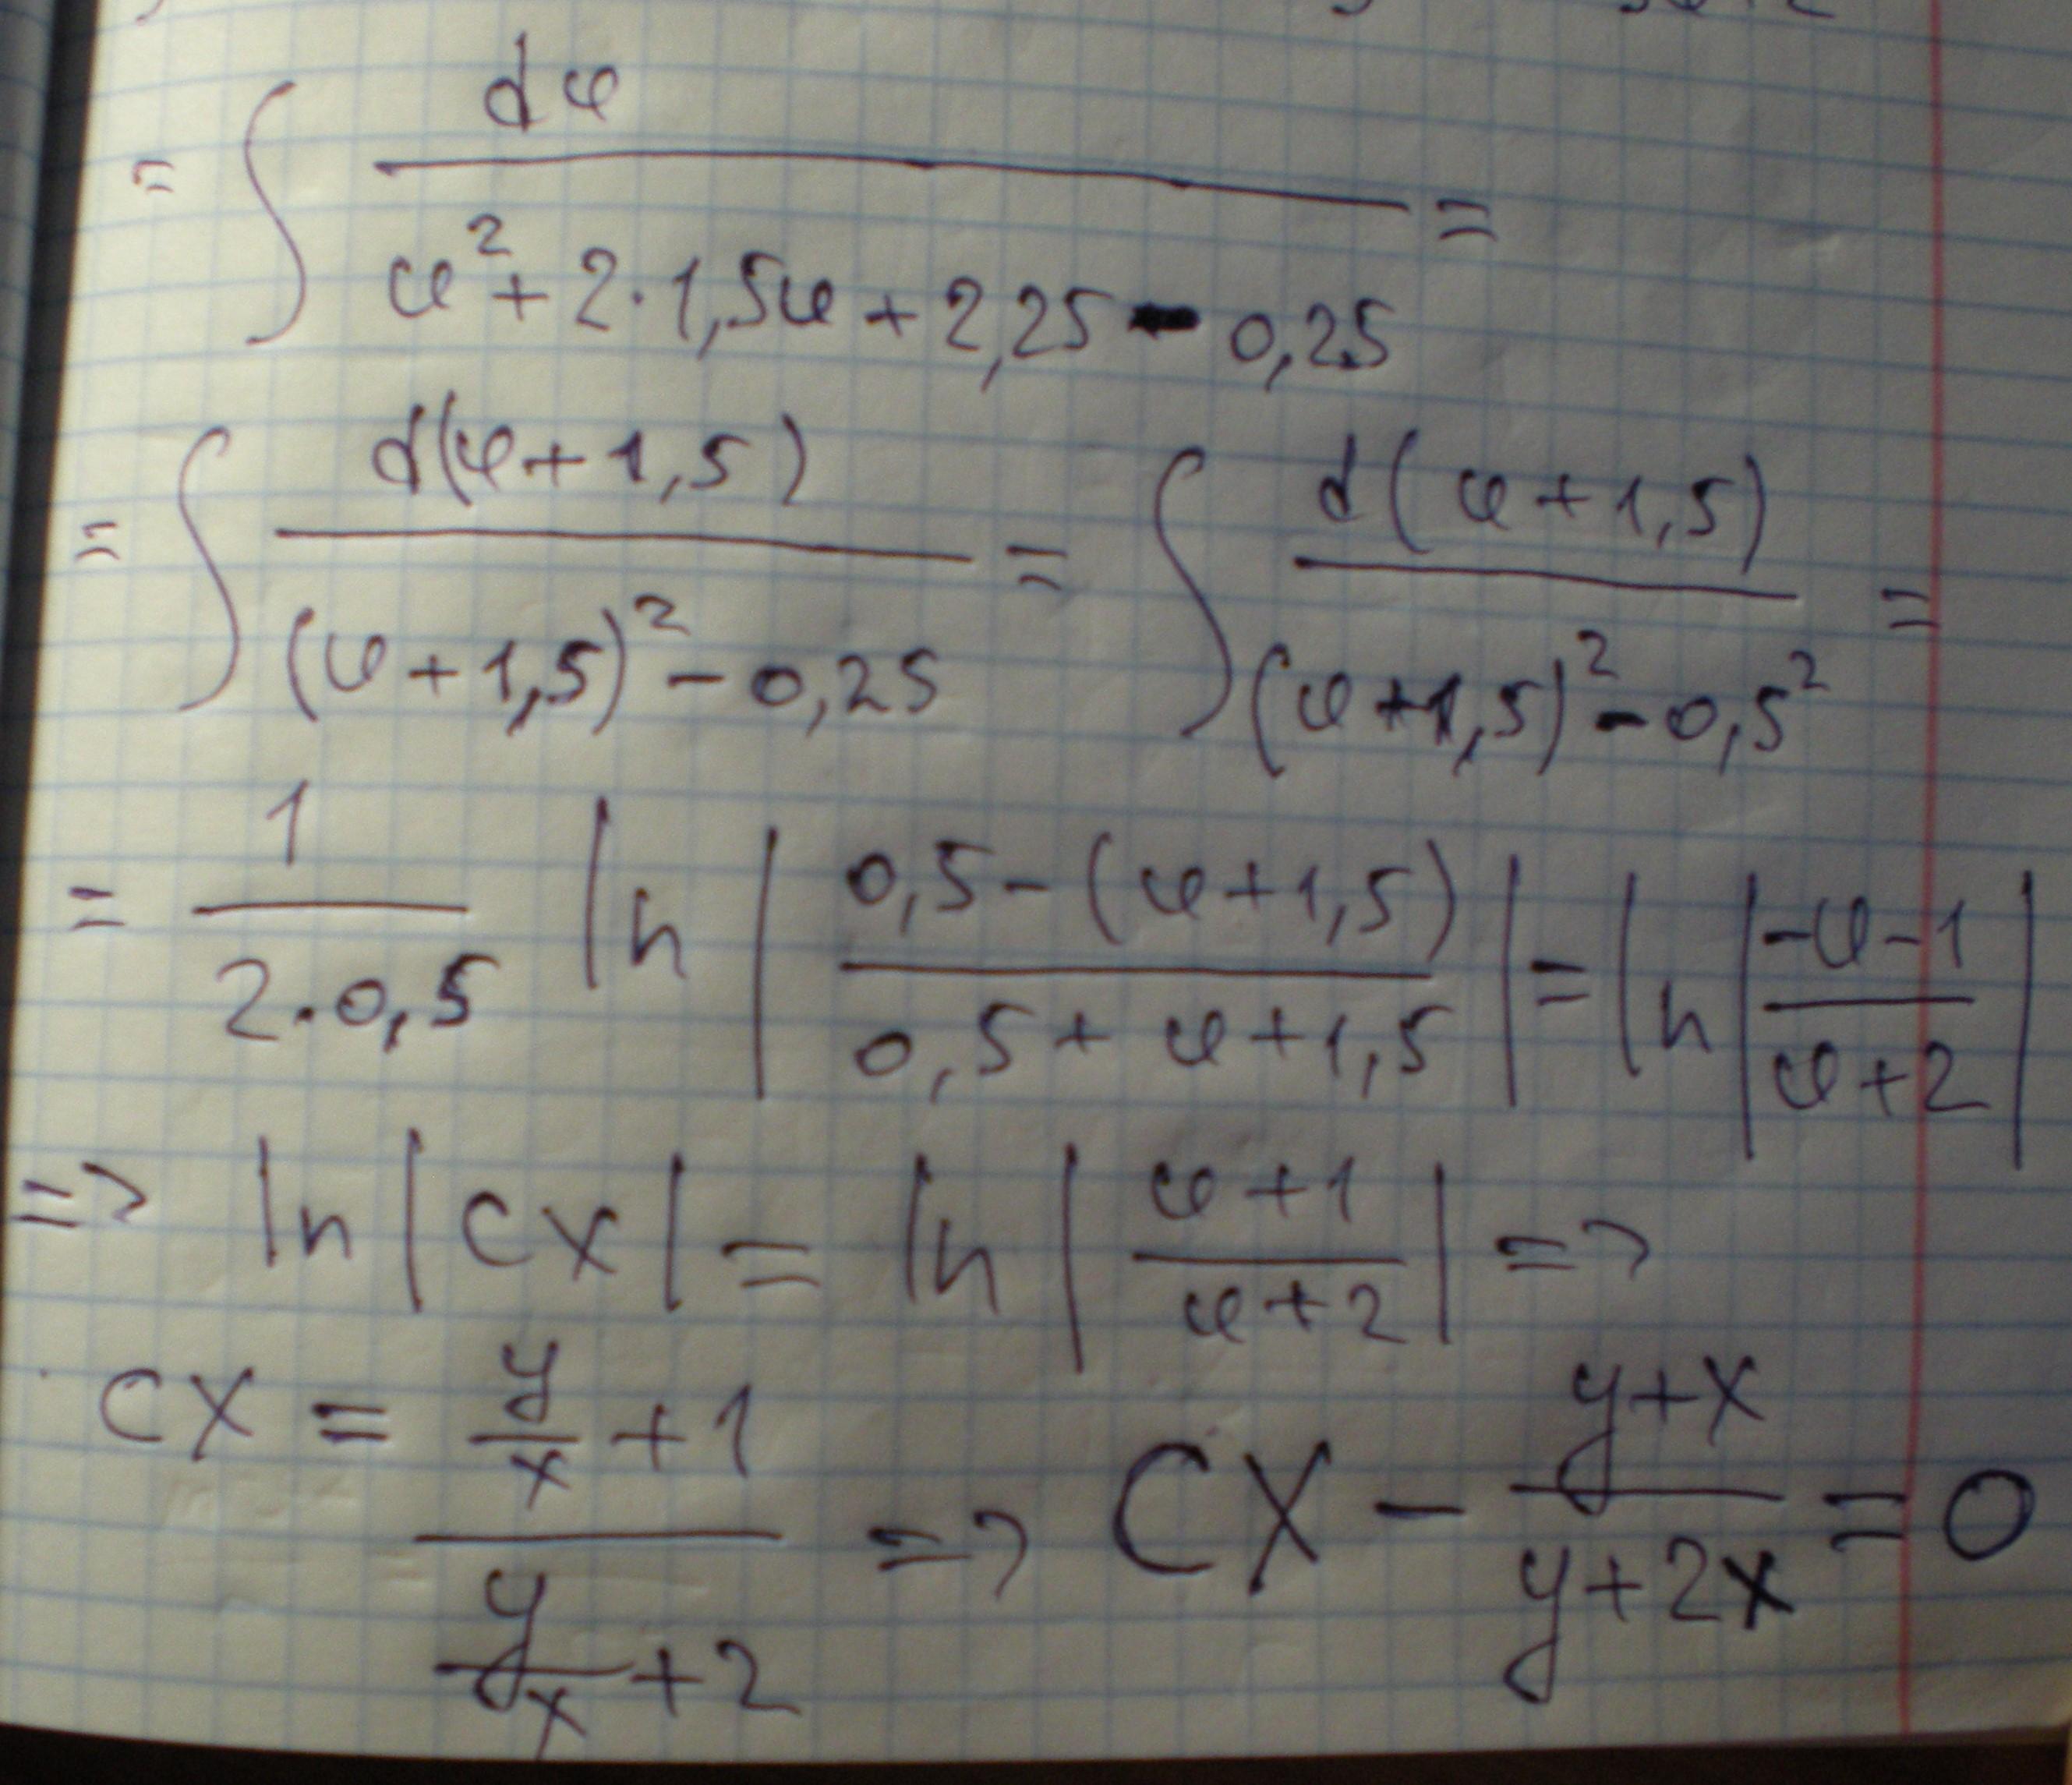 = ∫ dφ / (φ² + 2·1,5φ + 2,25 - 0,25) =
= ∫ d(φ+1,5) / ((φ+1,5)² - 0,25) = ∫ d(φ+1,5) / ((φ+1,5)² - 0,5²) =
= 1 / (2·0,5) ln | (0,5-(φ+1,5)) / (0,5+φ+1,5) | = ln | (-φ-1) / (φ+2) |
=> ln |cx| = ln | (φ+1) / (φ+2) | =>
cx = (y/x + 1) / (y/x + 2) => cx - (y+x) / (y+2x) = 0